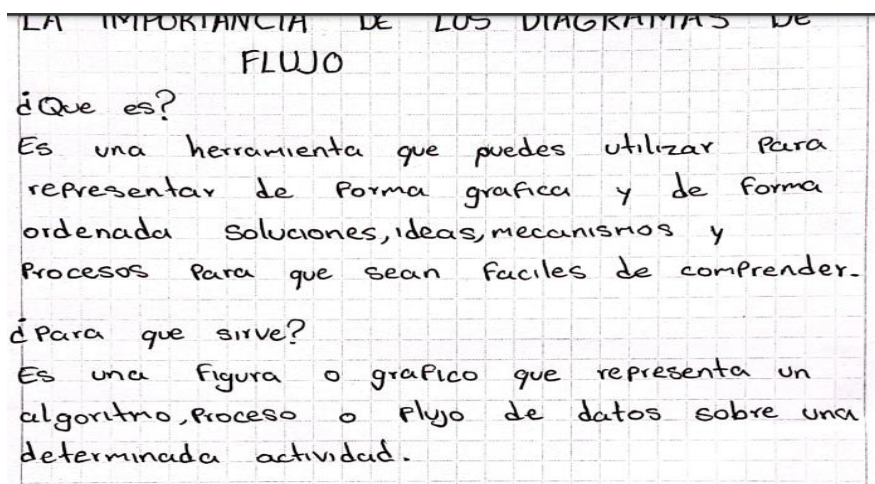 LA IMPORTANCIA DE LOS DIAGRAMAS DE
FLUJO
¿Que es?
Es una herramienta que puedes utilizar Para
representar de Forma grafica y de forma
ordenada soluciones, ideas, mecanismos y
Procesos Para que sean faciles de comprender.
¿Para que sirve?
Es una figura o grafico que representa un
algoritmo, Proceso o Flujo de datos sobre una
determinada actividad.